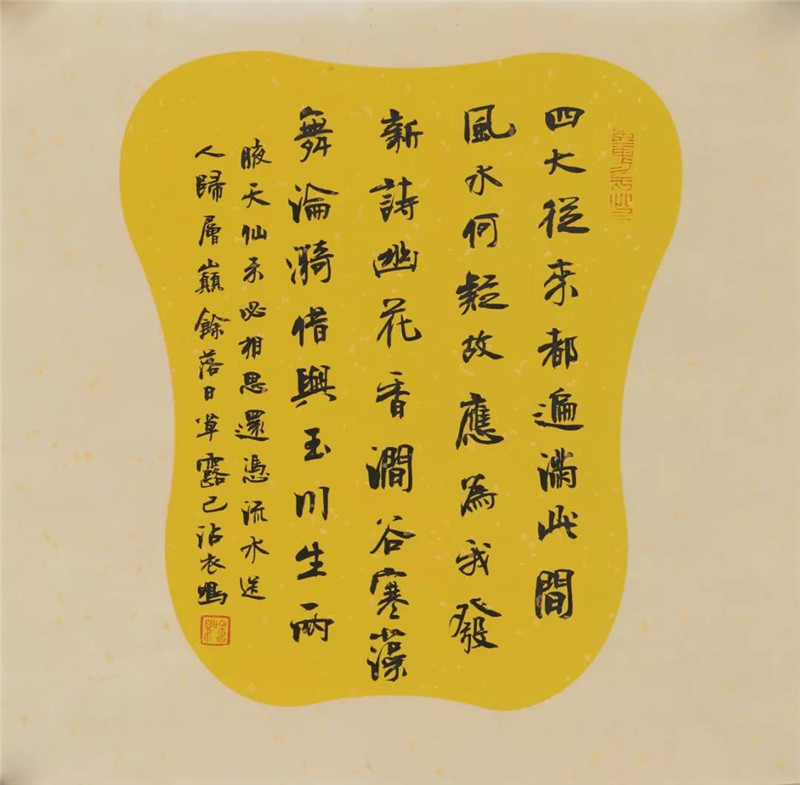 四大從來都遍滿此間
風水何疑故應為我發
新詩幽花香澗谷寒藻
舞淪漪借與玉川生兩
腋天仙未必相思還憑流水送
人歸層巔餘落日草露已沾衣鳴